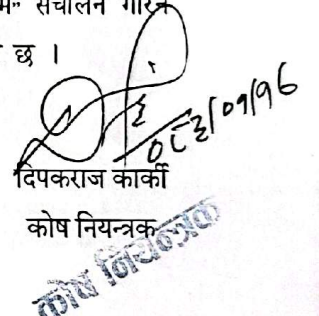 सञ्चालन गरिने
छ ।
०८३/०१/१६
दिपकराज कार्की
कोष नियन्त्रक
कोष नियन्त्रक